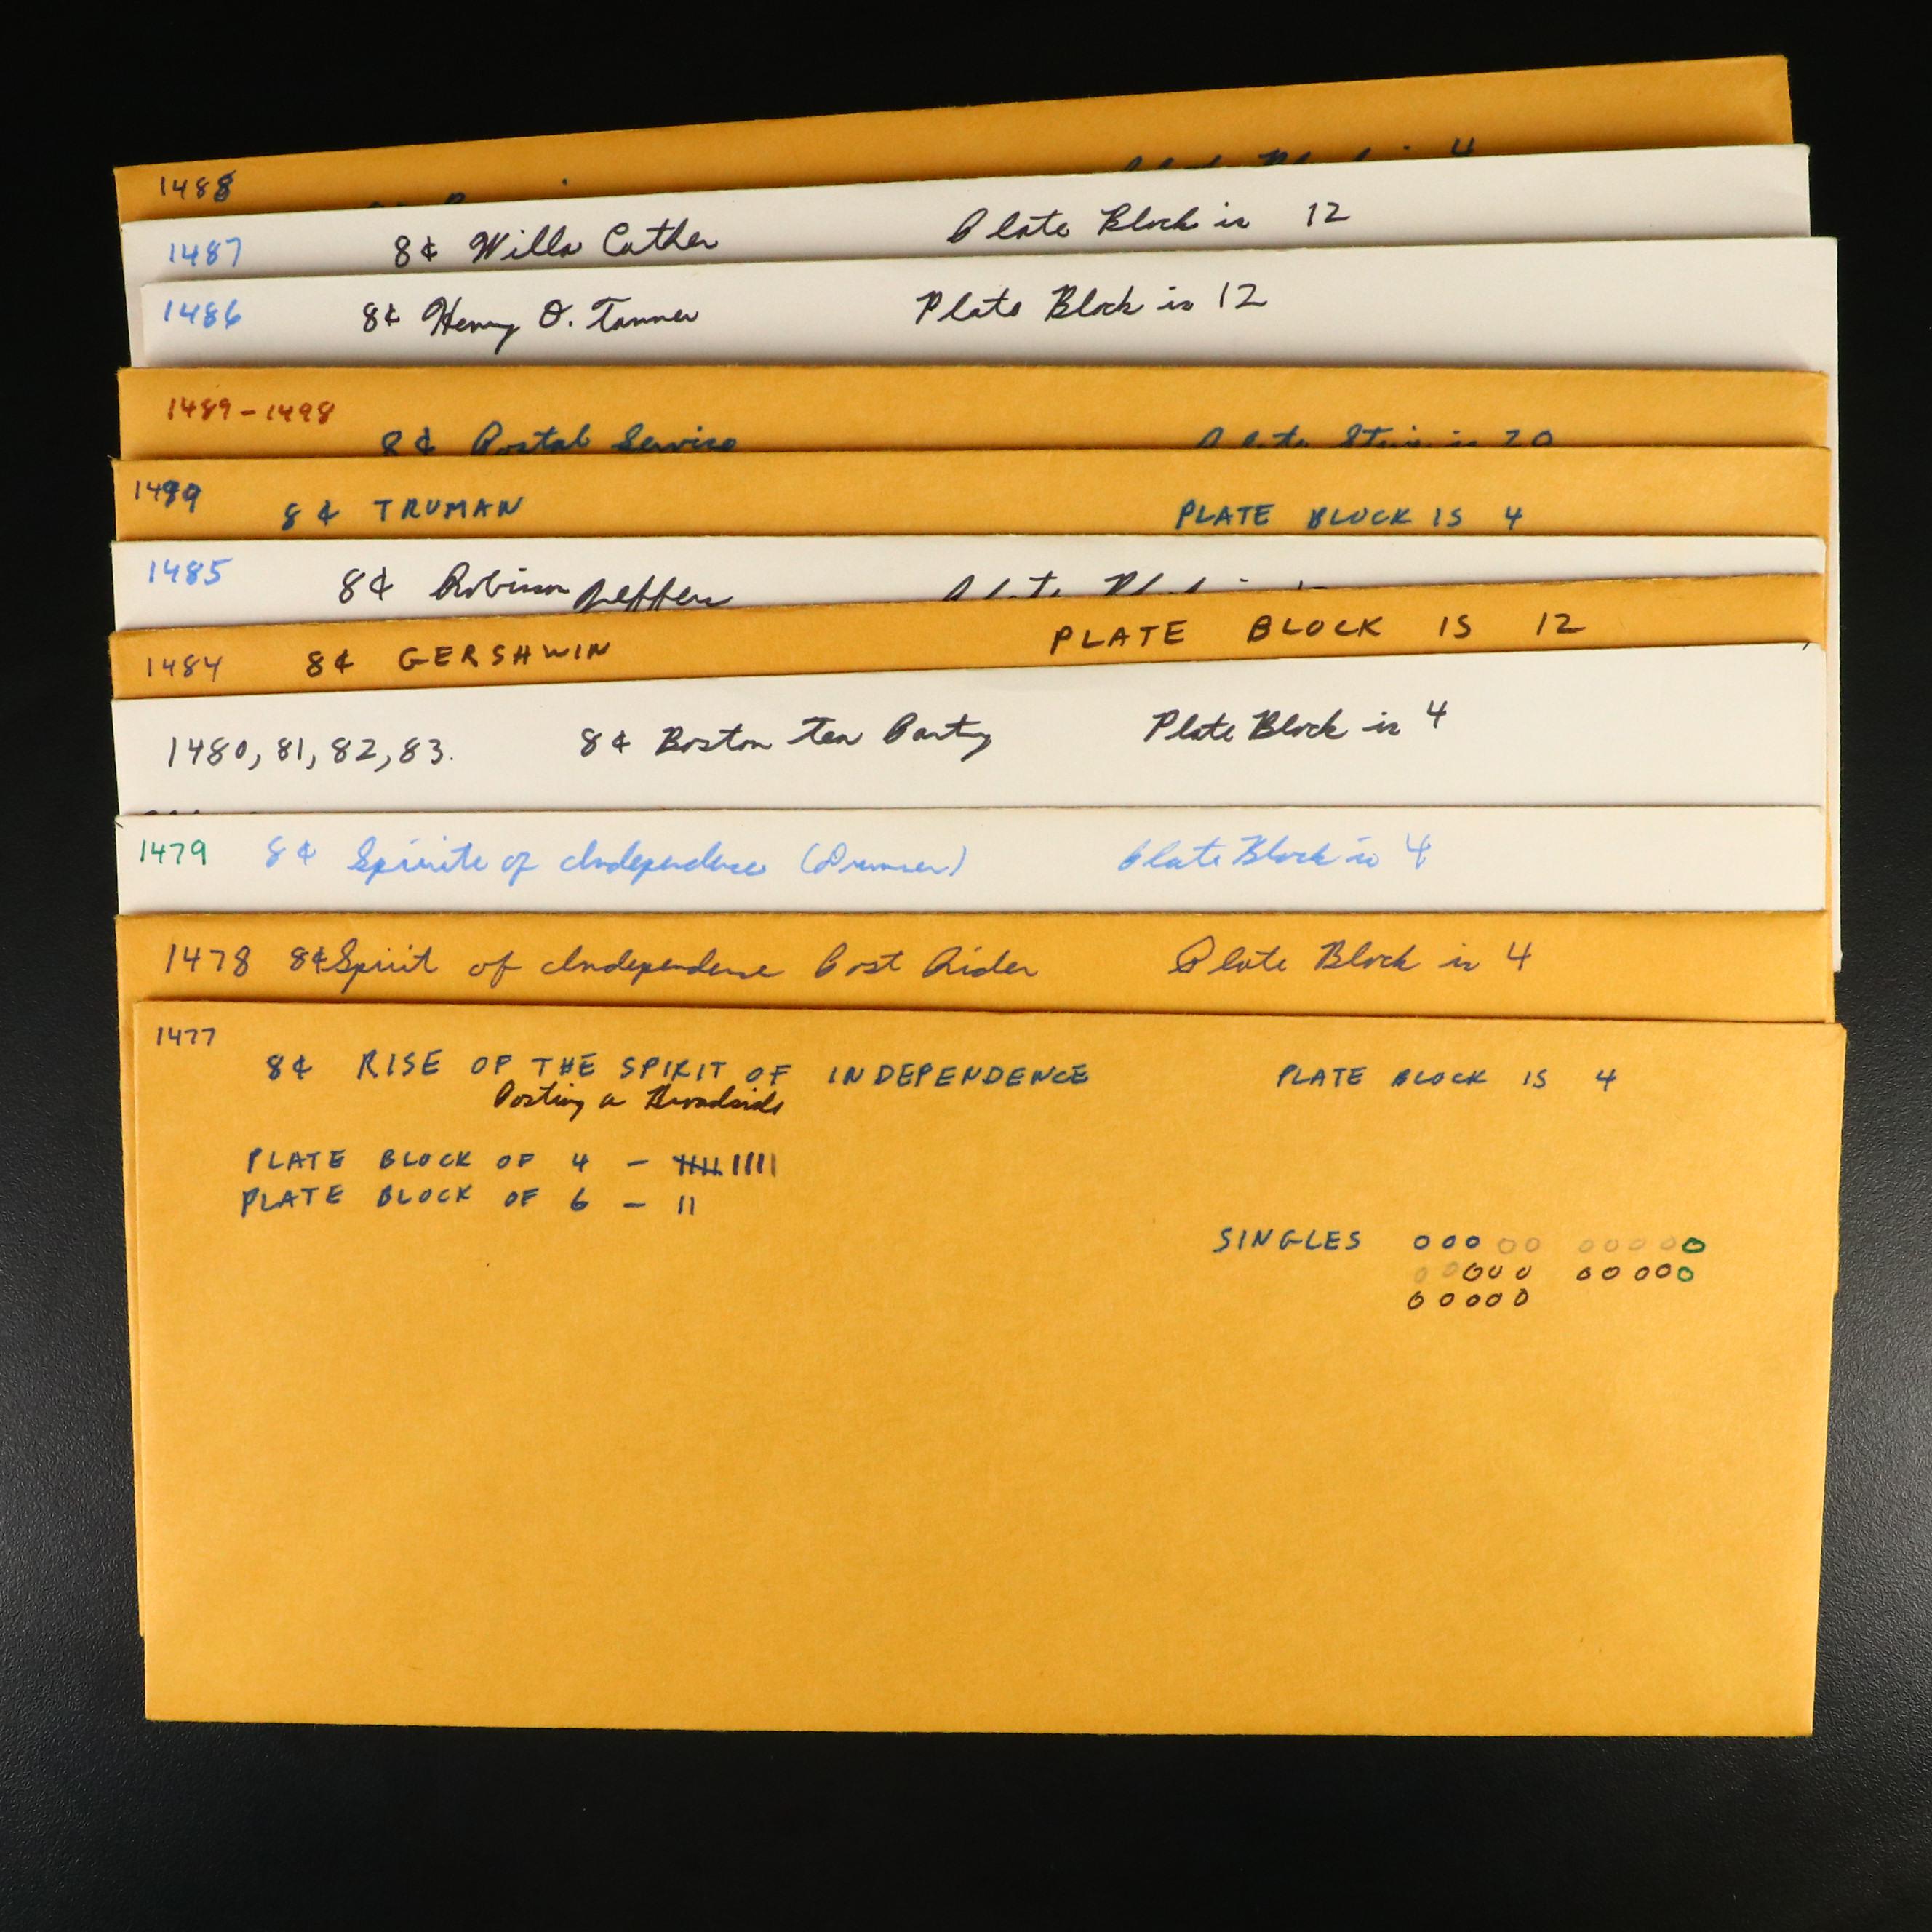 1488
1487 8¢ Willa Cather Plate Block is 12
1486 8¢ Henry O. Tanner Plate Block is 12
1489-1498
8¢ Postal Service Plate Strip is 20
1499 8¢ TRUMAN PLATE BLOCK IS 4
1485 8¢ Robinson Jeffers Plate Block is
1484 8¢ GERSHWIN PLATE BLOCK IS 12
1480, 81, 82, 83. 8¢ Boston Tea Party Plate Block is 4
1479 8¢ Spirite of Independence (Drummer) Plate Block is 4
1478 8¢ Spirit of Independense Post Rider Plate Block is 4
1477
8¢ RISE OF THE SPIRIT OF INDEPENDENCE PLATE BLOCK IS 4
Posting a Broadside
PLATE BLOCK OF 4 -
PLATE BLOCK OF 6 - 11
SINGLES